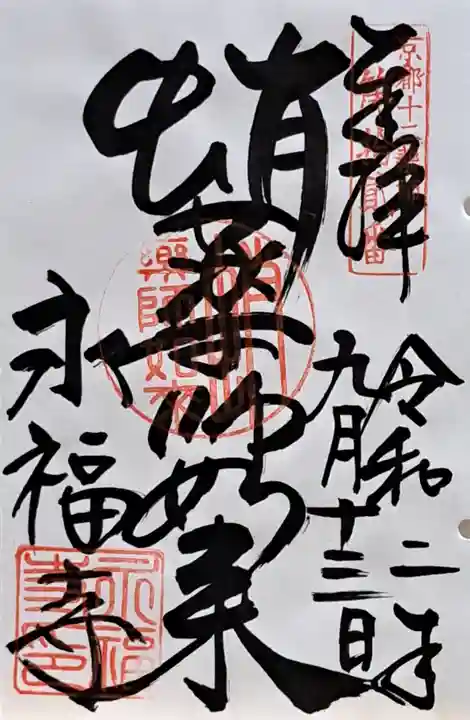 奉拝
令和二年
九月十三日
蛸薬師如来
永福寺
京都十二薬師
薬師如来